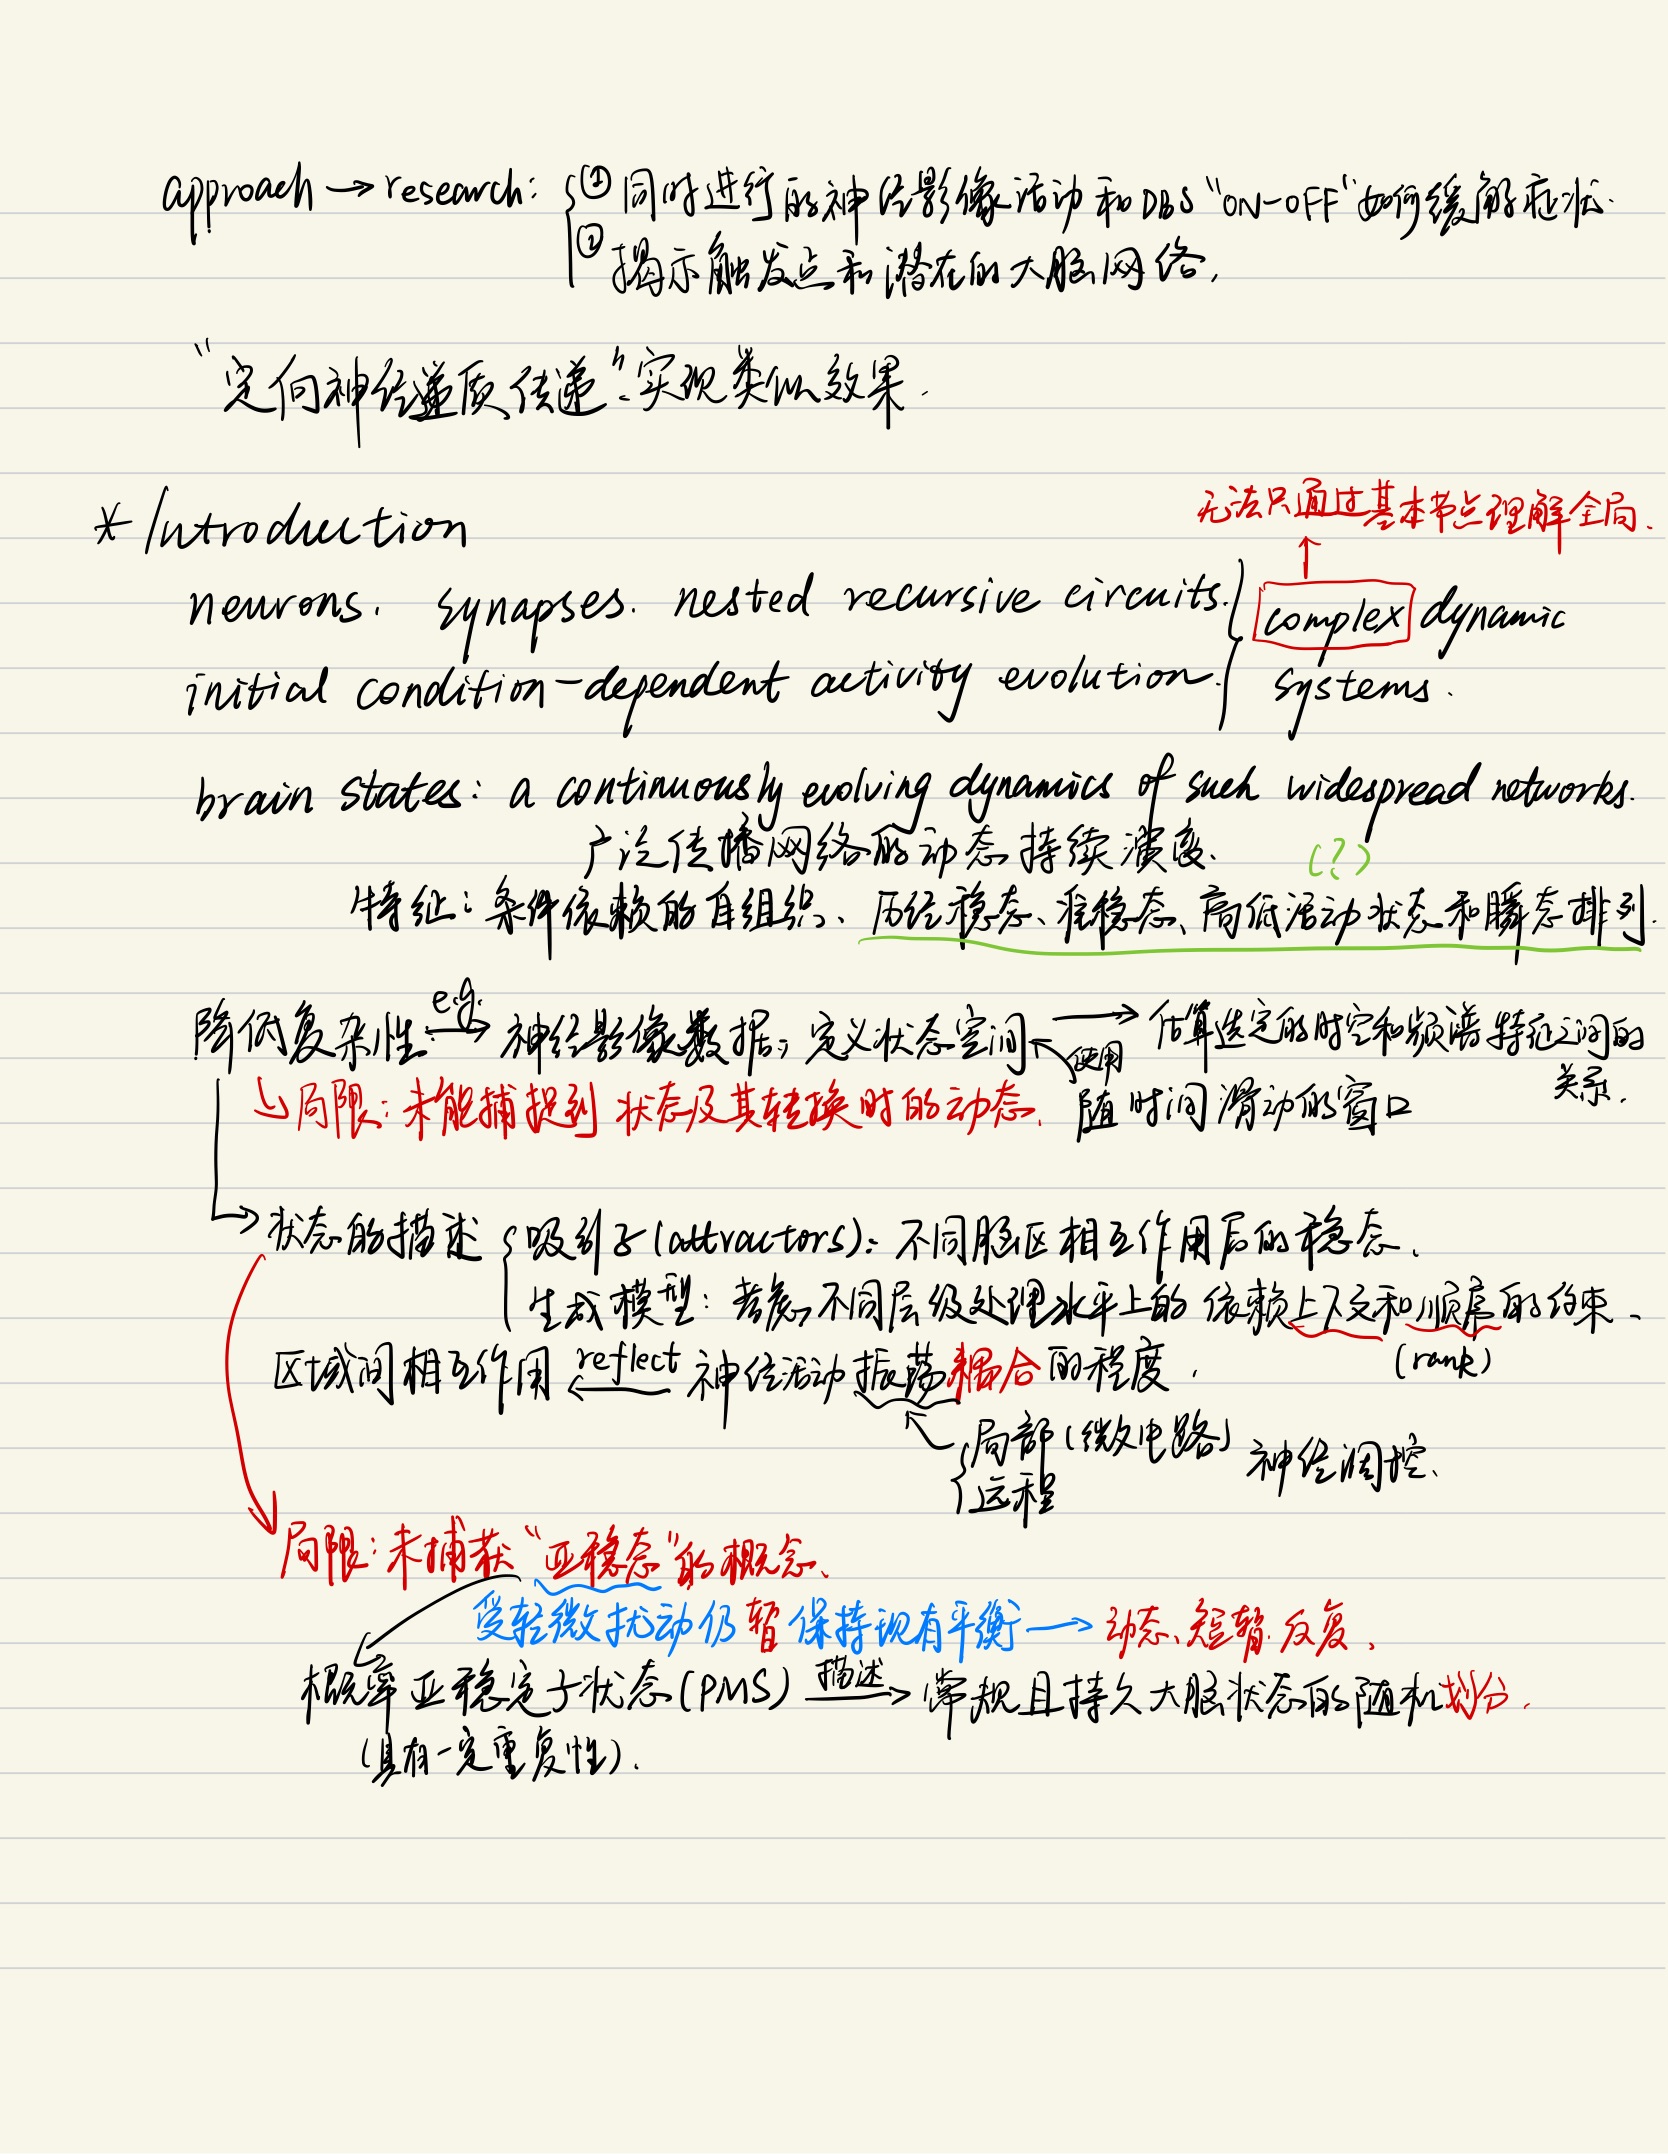 approach → research: ① 同时进行的神经影像活动和DBS "ON-OFF" 如何缓解症状.
② 揭示触发点和潜在的大脑网络.
"定向神经递质传递": 实现类似效果.
* Introduction
无法只通过基本节点理解全局.
neurons. synapses. nested recursive circuits. complex dynamic
initial condition-dependent activity evolution. systems.
brain states: a continuously evolving dynamics of such widespread networks.
广泛传播网络的动态持续演变. (?)
特征: 条件依赖的自组织、历经稳态、准稳态、高低活动状态和瞬态排列.
降低复杂性 e.g. → 神经影像数据; 定义状态空间 → 估算选定的时空和频谱特征之间的
使用 关系.
↳ 局限: 未能捕捉到状态及其转换时的动态. 随时间滑动的窗口
→ 状态的描述 { 吸引子 (attractors): 不同脑区相互作用后的稳态.
生成模型: 考虑不同层级处理水平上的依赖上下文和顺序的约束、
区域间相互作用 ← reflect 神经活动振荡耦合的程度. (rank)
局部 (微电路) 神经调控.
远程
局限: 未捕获 "亚稳态" 的概念.
受轻微扰动仍暂保持现有平衡 → 动态、短暂. 反复.
概率亚稳定子状态 (PMS) 描述 → 常规且持久大脑状态的随机划分.
(具有一定重复性).